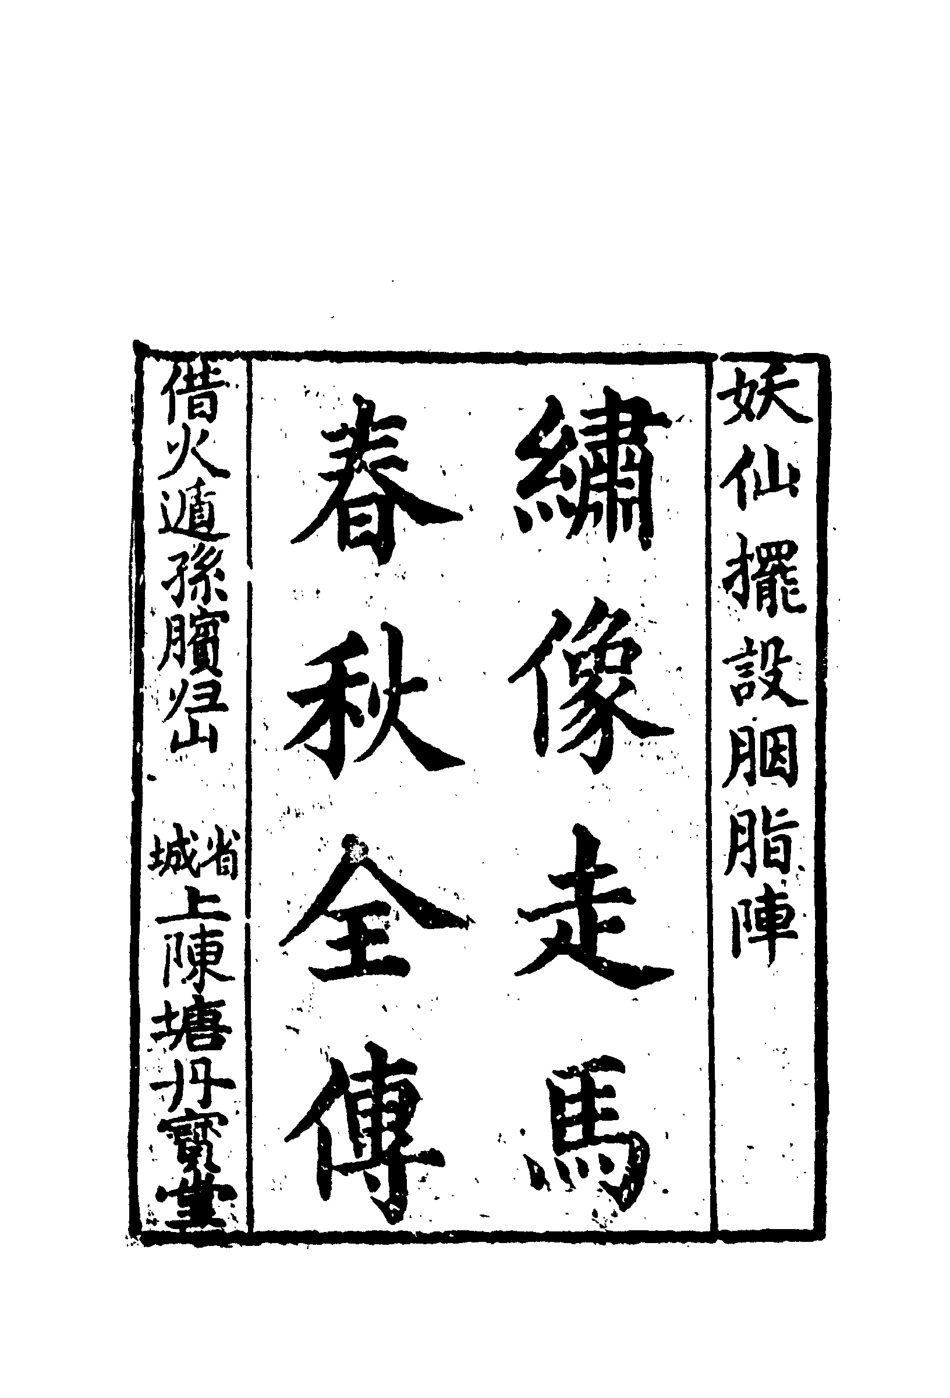 妖仙擺設胭脂陣
繡像走馬
春秋全傳
借火遁孫臏归山
省城上陳塘丹寶堂